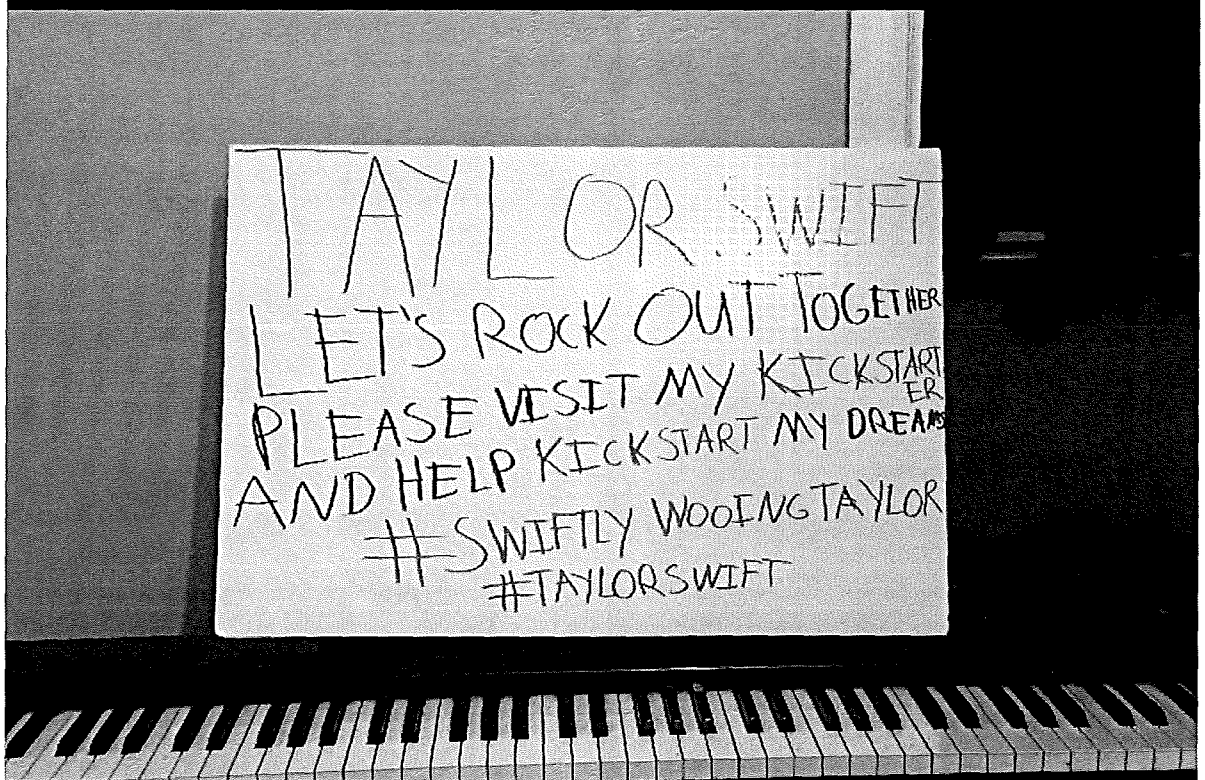 TAYLOR SWIFT
LET'S ROCK OUT TOGETHER
PLEASE VISIT MY KICKSTART
ER
AND HELP KICKSTART MY DREAMS
#SWIFTLY WOOINGTAYLOR
#TAYLORSWIFT